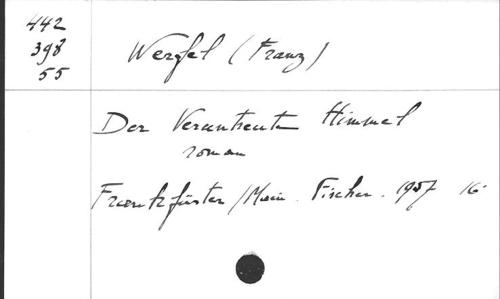 442
398
55
Werfel (Franz)
Der Veruntreute Himmel
roman
Frankfürter/Main. Fischer. 1957 16°